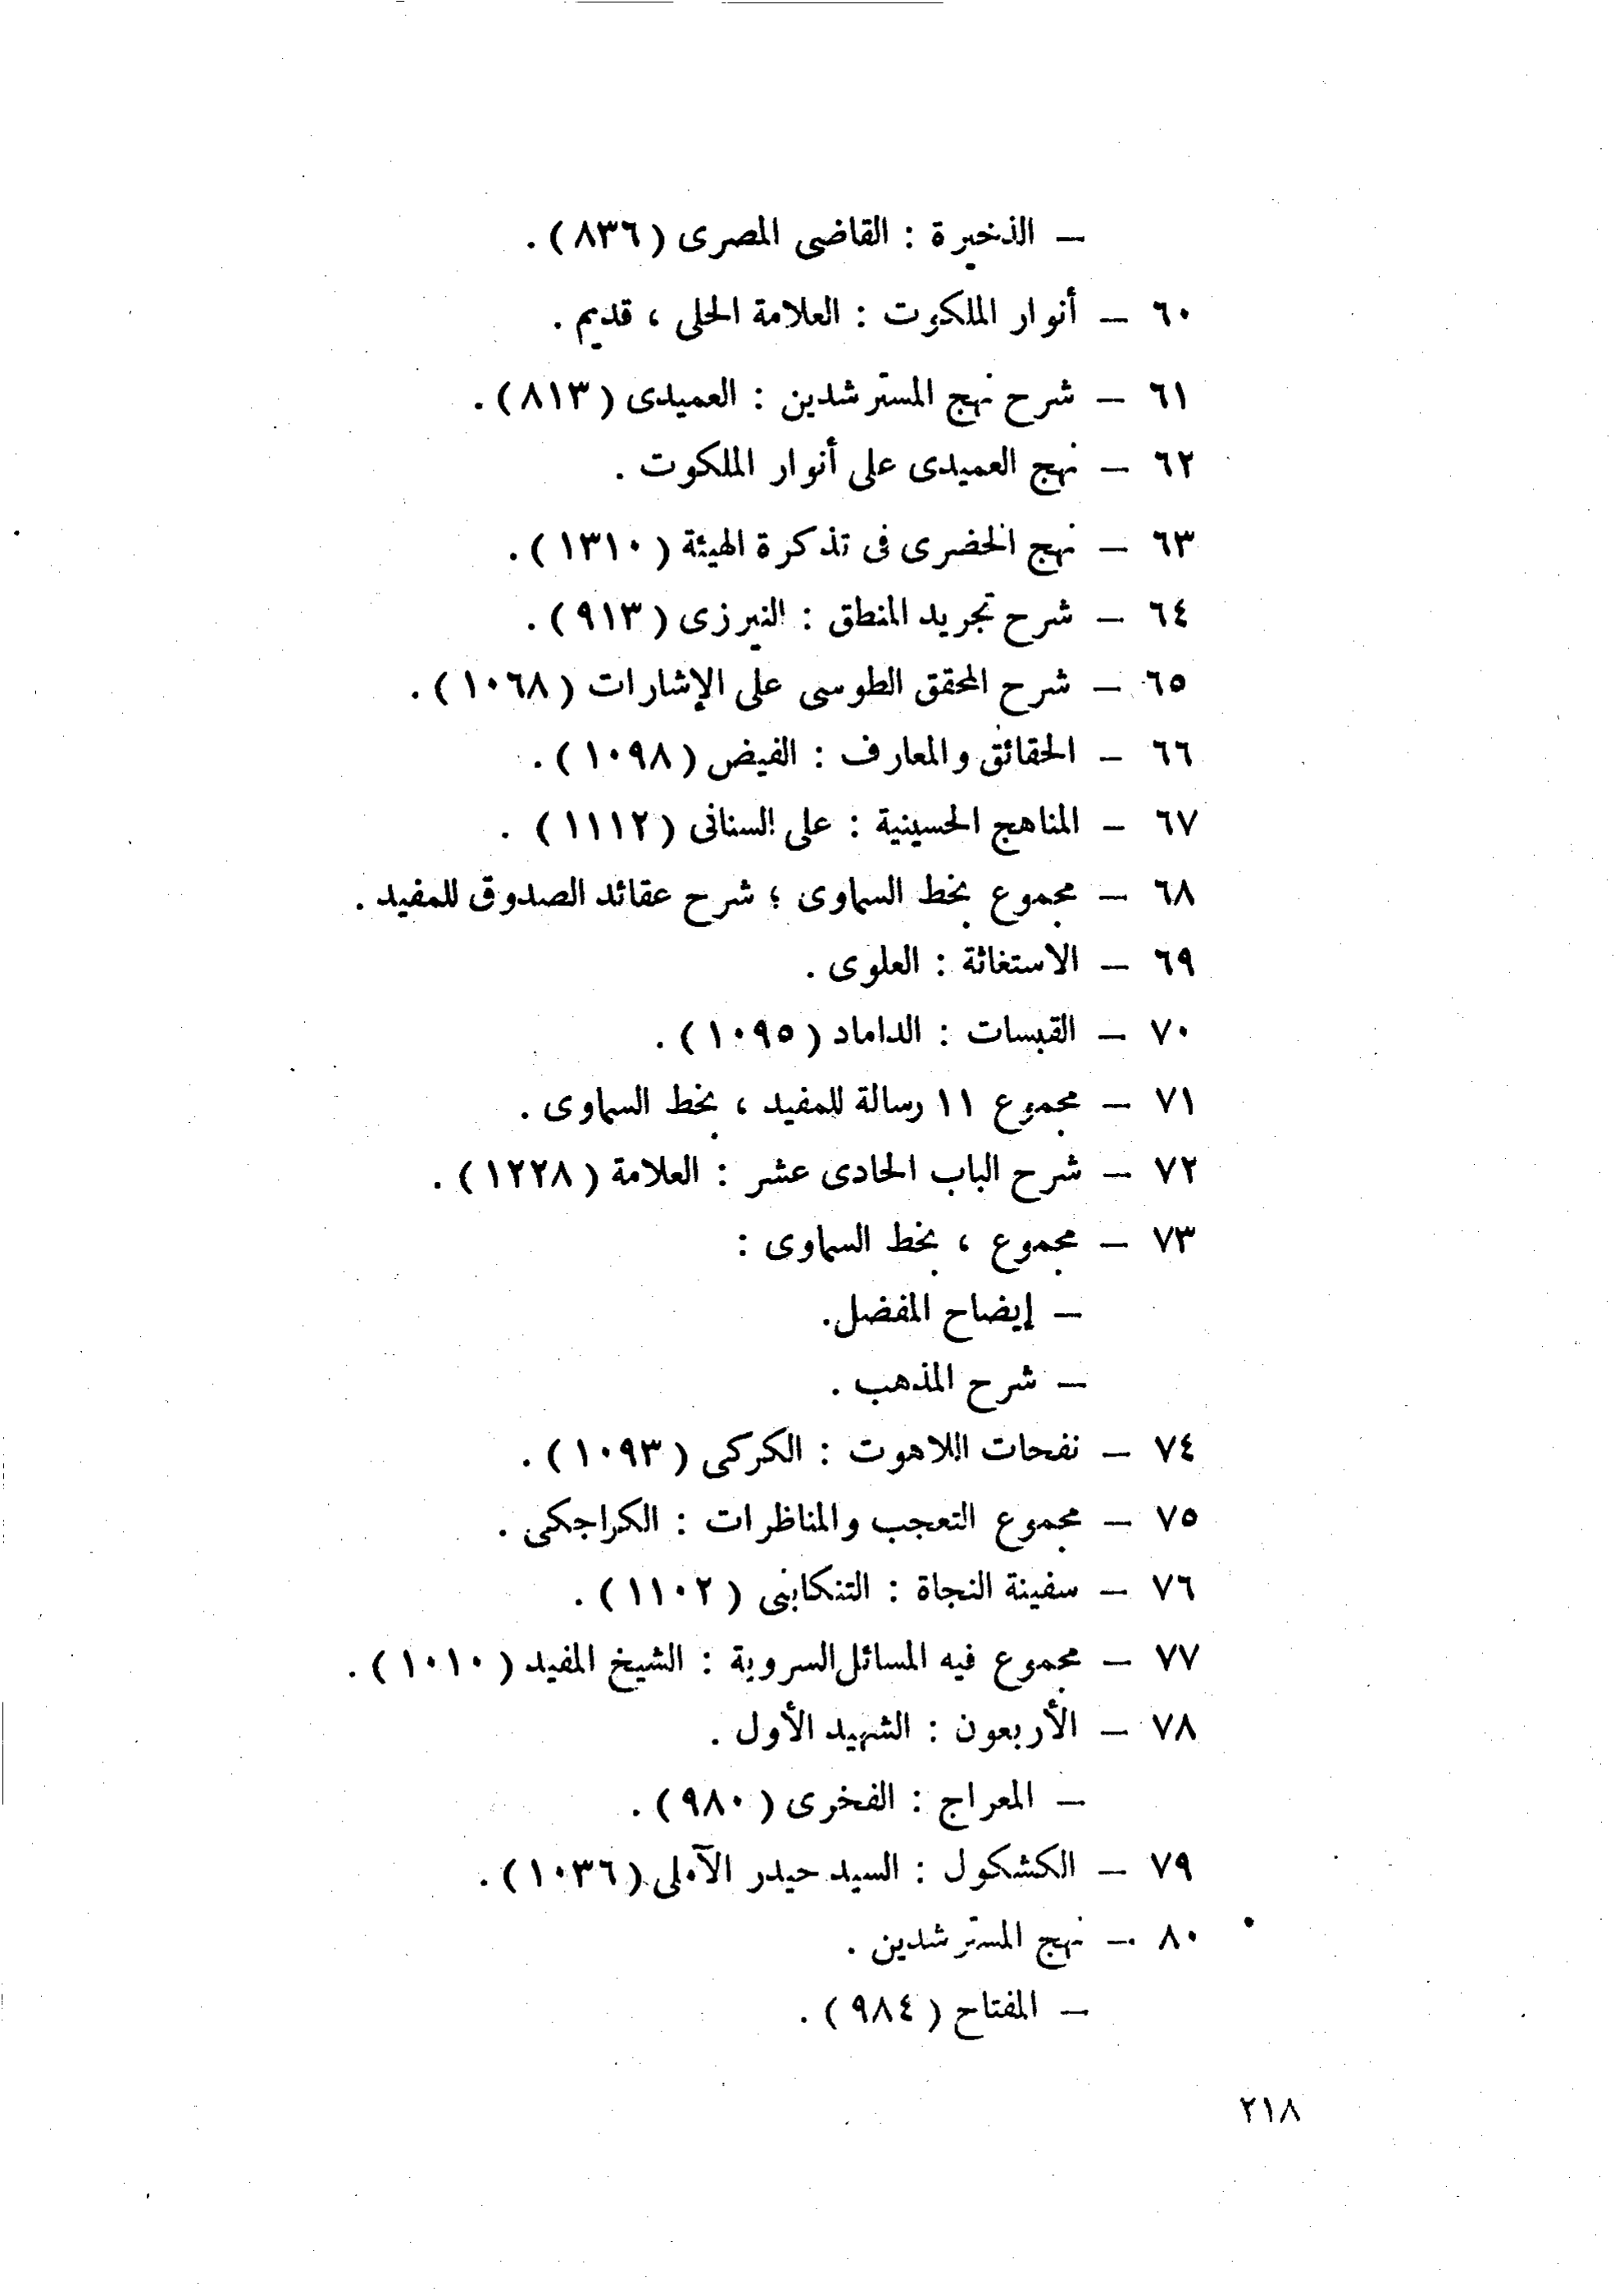 – الذخيرة : القاضى المصرى (٨٣٦) .
٦٠ – أنوار الملكوت : العلامة الحلى ، قديم .
٦١ – شرح نهج المسترشدين : العميدى (٨١٣) .
٦٢ – نهج العميدى على أنوار الملكوت .
٦٣ – نهج الخضرى فى تذكرة الهيئة (١٣١٠) .
٦٤ – شرح تجريد المنطق : النيرزى (٩١٣) .
٦٥ – شرح المحقق الطوسى على الإشارات (١٠٦٨) .
٦٦ – الحقائق والمعارف : الفيض (١٠٩٨) .
٦٧ – المناهج الحسينية : على السنانى (١١١٢) .
٦٨ – مجموع بخط السماوى ؛ شرح عقائد الصدوق للمفيد .
٦٩ – الاستغاثة : العلوى .
٧٠ – القبسات : الداماد (١٠٩٥) .
٧١ – مجموع ١١ رسالة للمفيد ، بخط السماوى .
٧٢ – شرح الباب الحادى عشر : العلامة (١٢٢٨) .
٧٣ – مجموع ، بخط السماوى :
– إيضاح المفضل .
– شرح المذهب .
٧٤ – نفحات اللاهوت : الكركى (١٠٩٣) .
٧٥ – مجموع التعجب والمناظرات : الكراجكى .
٧٦ – سفينة النجاة : التنكابنى (١١٠٢) .
٧٧ – مجموع فيه المسائل السروية : الشيخ المفيد (١٠١٠) .
٧٨ – الأربعون : الشهيد الأول .
– المعراج : الفخرى (٩٨٠) .
٧٩ – الكشكول : السيد حيدر الآملى (١٠٣٦) .
٨٠ – نهج المسترشدين .
– المفتاح (٩٨٤) .
٢١٨